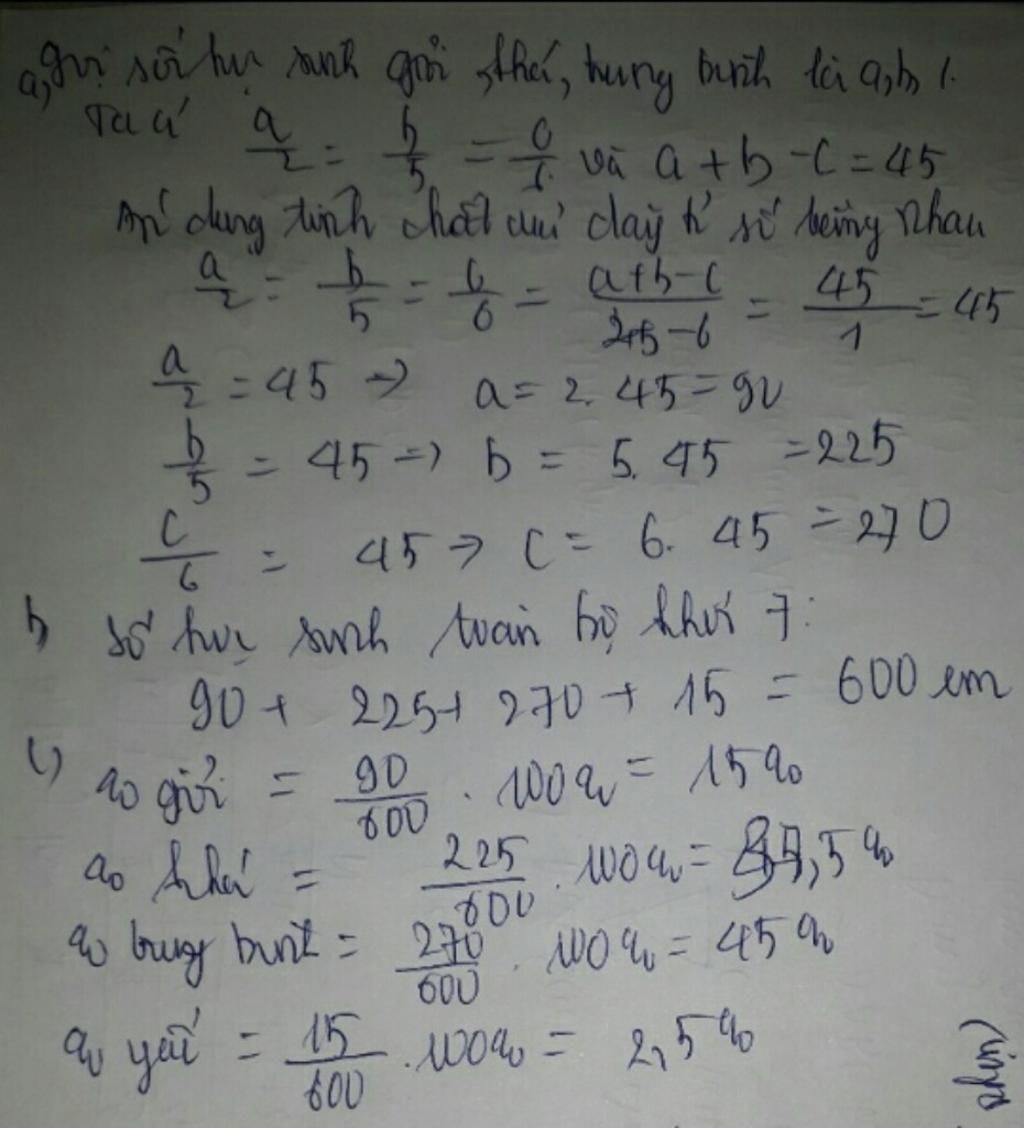 a, gọi số học sinh giỏi, khá, trung bình là a, b, c.
Ta có a/2 = b/5 = c/6 và a + b - c = 45
Áp dụng tính chất của dãy tỉ số bằng nhau
a/2 = b/5 = c/6 = (a+b-c)/(2+5-6) = 45/1 = 45
a/2 = 45 → a = 2. 45 = 90
b/5 = 45 → b = 5. 45 = 225
c/6 = 45 → c = 6. 45 = 270
b, Số học sinh toàn bộ khối 7:
90 + 225 + 270 + 15 = 600 em
c) % giỏi = 90/600 . 100% = 15%
% khá = 225/600 . 100% = 37,5%
% trung bình = 270/600 . 100% = 45%
% yếu = 15/600 . 100% = 2,5%